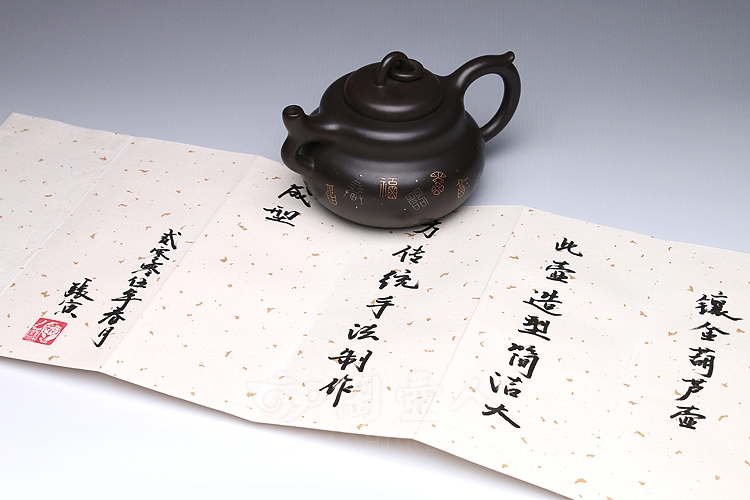 镶金葫芦壶
此壶造型简洁大
方传统手法制作
成型
贰零零伍年春月
张寅
福